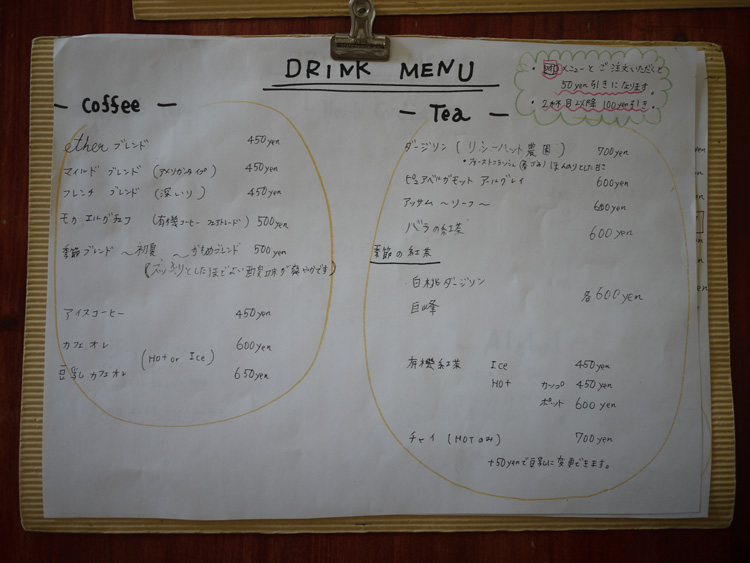 DRINK MENU
メニューとご注文いただくと
50yen引きになります
・2杯目以降 100yen引き・
- Coffee -
ether ブレンド 450yen
マイルド ブレンド (アメリカンタイプ) 450yen
フレンチ ブレンド (深いり) 450yen
モカ エルガチョフ (有機コーヒー フェアトレード) 500yen
季節ブレンド ～初夏～かろめブレンド 500yen
(スッキリとしたほどよい酸味が爽やかです)
アイスコーヒー 450yen
カフェオレ 600yen
(Hot or Ice)
豆乳カフェオレ 650yen
- Tea -
ダージリン (リシーハット農園) 700yen
・ファーストフラッシュ(春づみ)ほんのりとした甘さ
ピュアベルガモット アールグレイ 600yen
アッサム ～リーフ～ 600yen
バラの紅茶 600yen
季節の紅茶
白桃ダージリン
巨峰 各600yen
有機紅茶 Ice 450yen
Hot カップ 450yen
ポット 600yen
チャイ (HOTのみ) 700yen
+50yenで豆乳に変更できます。